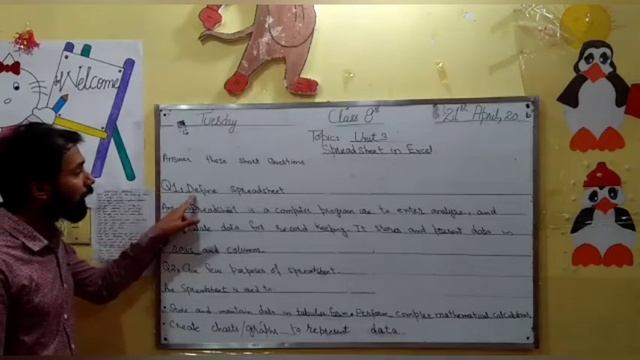 Welcome
Tuesday
Class 8th
21st April, 20
Topic: Unit 3
Spreadsheet in Excel
Answer these short Questions
Q1: Define spreadsheet
Spreadsheet is a computer program use to enter, analyze, and
data for record keeping. It stores and present data in
rows and columns.
Q2: Give few purposes of spreadsheet.
Ans Spreadsheet is used to
• Store and maintain data in tabular form. • Perform complex mathematical calculations
• Create charts/graphs to represent data